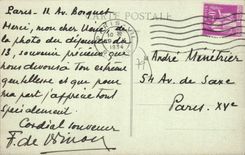 Paris - 11 Av. Bosquet
CARTE POSTALE
PARIS VII
1934
Merci, mon cher
la photo du déjeuner du
13, souvenir précieux que
nous devons à ton extrême
gentillesse et que pour
ma part j'apprécie tout
spécialement
Cordial souvenir
F. de
André Ménétrier
54 Av. de Saxe
Paris. XVe